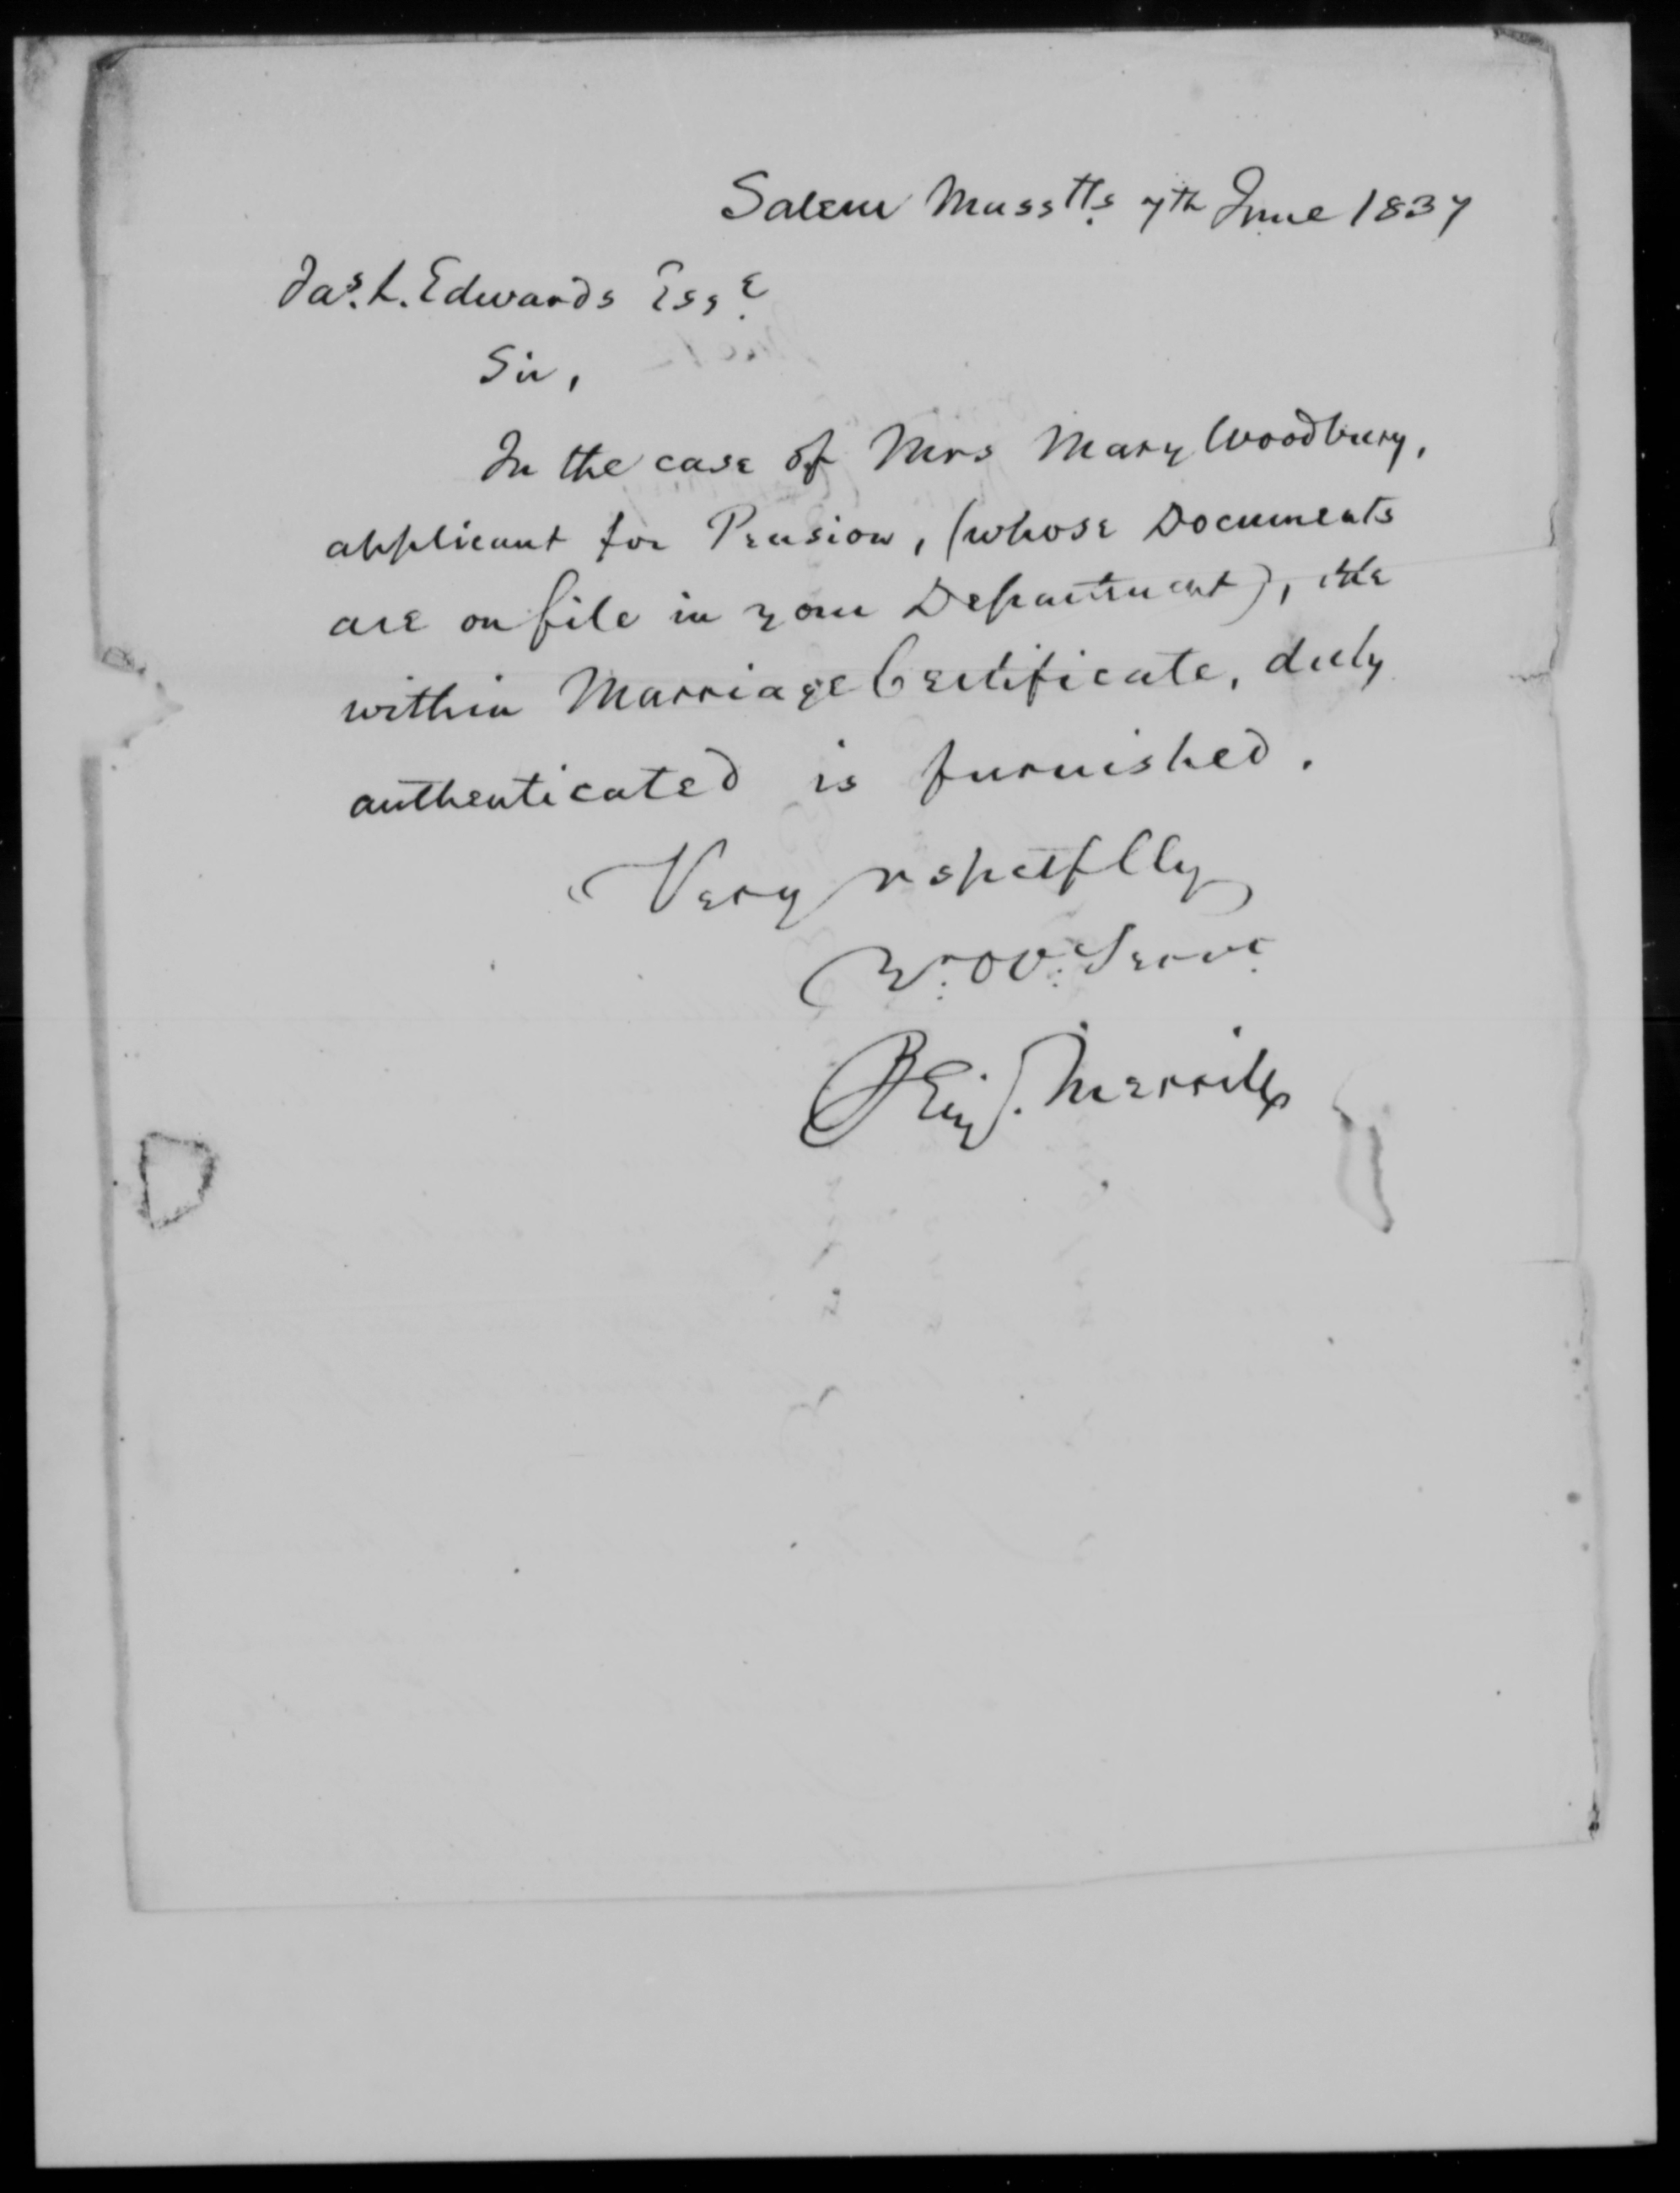 Salem Masstts. 7th June 1837
Jas. L. Edwards Esqe.
Sir,
In the case of Mrs Mary Woodbury,
applicant for Pension, (whose Documents
are on file in your Department), the
within Marriage Certificate, duly
authenticated is furnished.
Very respetflly
Yr. Ob. Servt.
Benj. Merrill